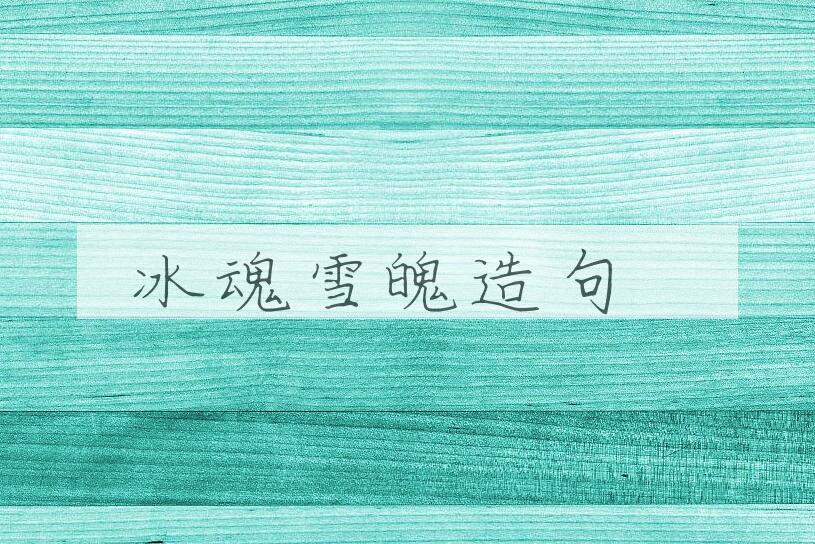 冰魂雪魄造句